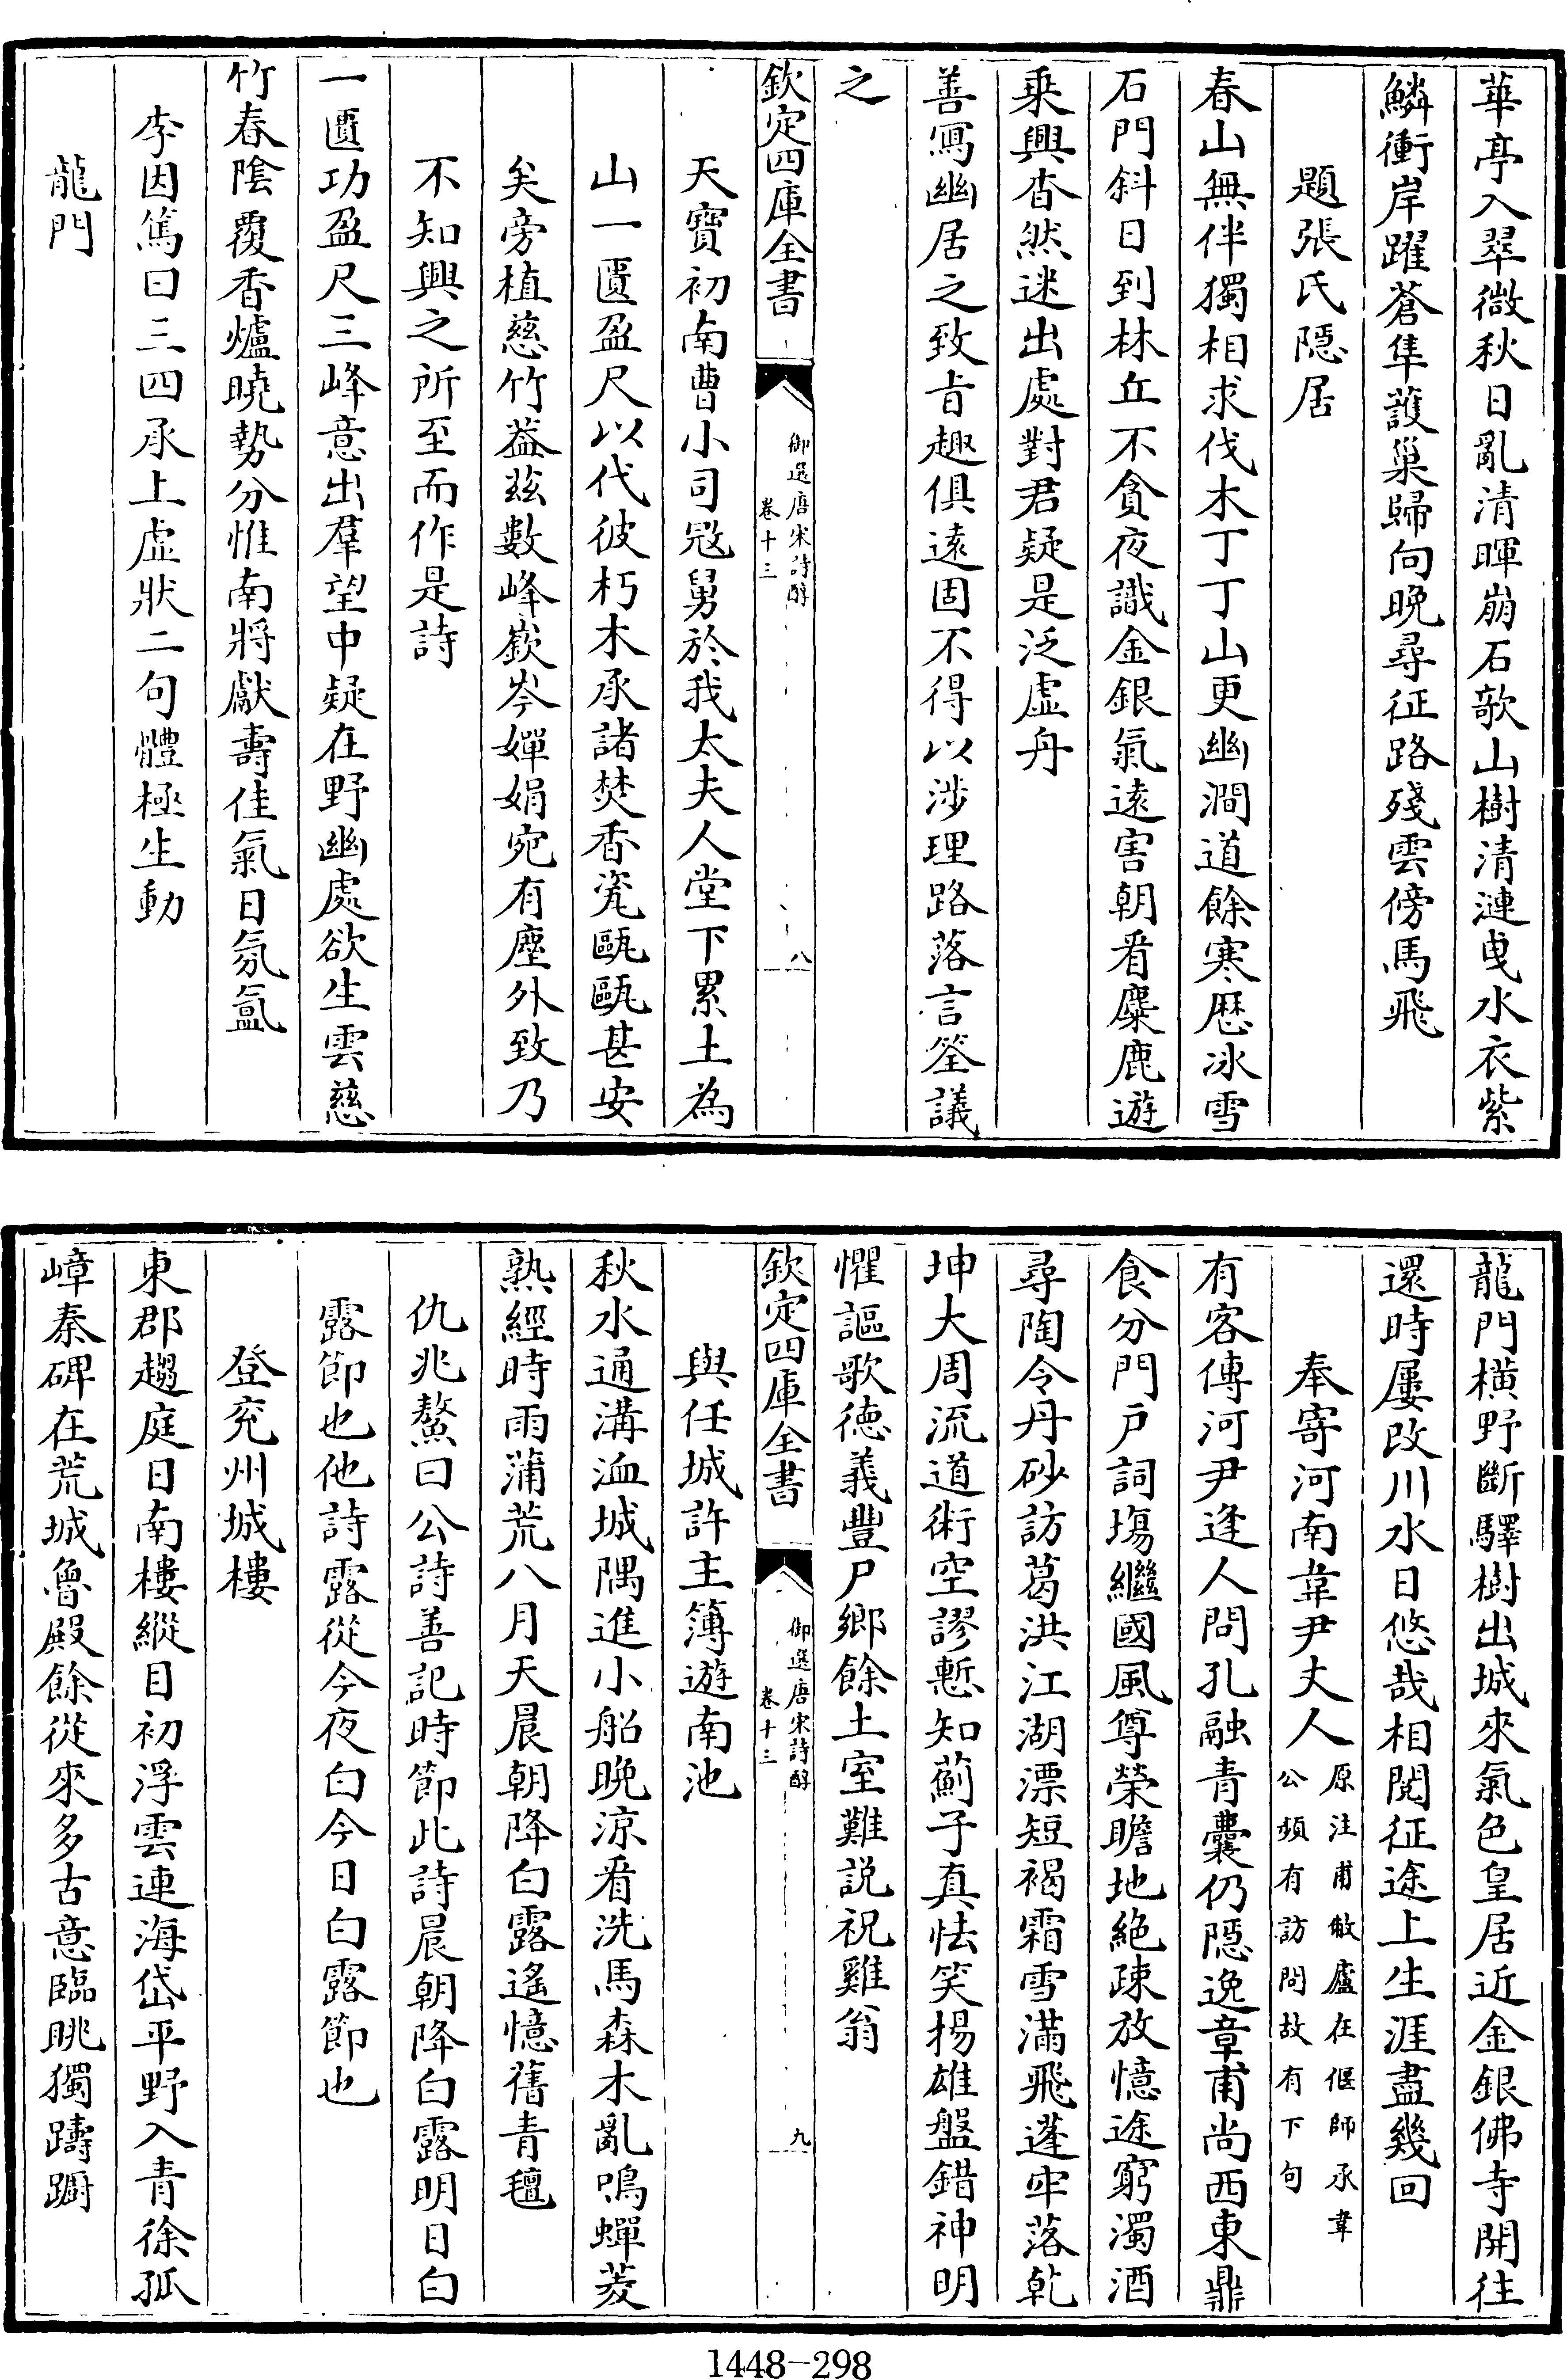 華亭入翠微秋日亂清暉崩石欹山樹清漣曵水衣紫
鱗衝岸躍蒼隼護巢歸向晩尋征路殘雲傍馬飛
題張氏隠居
春山無伴獨相求伐木丁丁山更幽澗道餘寒歴冰雪
石門斜日到林丘不貪夜識金銀氣逺害朝看麋鹿遊
乗興杳然迷出處對君疑是泛虚舟
善寫幽居之致㫖趣俱逺固不得以涉理路落言筌議
之
欽定四庫全書
御選唐宋詩醇
卷十三
八
天寶初南曹小司冦舅於我太夫人堂下累土為
山一匱盈尺以代彼朽木承諸焚香瓷甌甌甚安
矣旁植慈竹葢兹數峰嶔岑嬋娟宛有塵外致乃
不知興之所至而作是詩
一匱功盈尺三峰意出羣望中疑在野幽處欲生雲慈
竹春隂覆香爐曉勢分惟南將獻壽佳氣日氛氲
李因篤曰三四承上虚狀二句體極生動
龍門
龍門横野斷驛樹出城來氣色皇居近金銀佛寺開往
還時屢改川水日悠哉相閱征途上生涯盡幾回
奉寄河南韋尹丈人
原注甫敝廬在偃師承韋
公頻有訪問故有下句
有客傳河尹逢人問孔融青囊仍隠逸章甫尚西東鼎
食分門戸詞塲繼國風尊榮瞻地絶疎放憶途窮濁酒
尋陶令丹砂訪葛洪江湖漂短褐霜雪滿飛蓬牢落乾
坤大周流道術空謬慙知薊子真怯笑揚雄盤錯神明
懼謳歌徳義豐尸鄉餘土室難説祝雞翁
欽定四庫全書
御選唐宋詩醇
卷十三
九
與任城許主簿遊南池
秋水通溝洫城隅進小船晩涼看洗馬森木亂鳴蟬菱
熟經時雨蒲荒八月天晨朝降白露遙憶舊青氊
仇兆鰲曰公詩善記時節此詩晨朝降白露明日白
露節也他詩露從今夜白今日白露節也
登兖州城樓
東郡趨庭日南樓縱目初浮雲連海岱平野入青徐孤
嶂秦碑在荒城魯殿餘從來多古意臨眺獨躊躕
1448-298